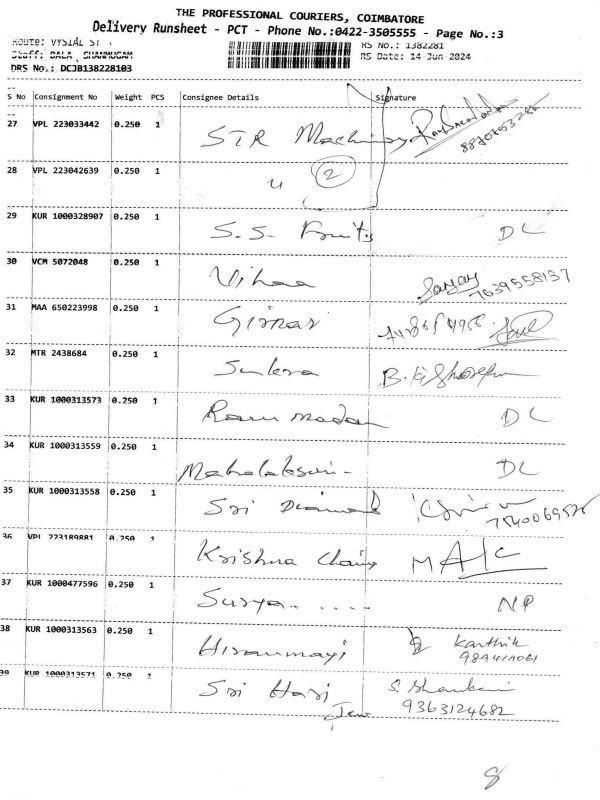 THE PROFESSIONAL COURIERS, COIMBATORE
Delivery Runsheet - PCT - Phone No.:0422-3505555 - Page No.:3
Route: VYSIAL ST
Staff: BALA, SHANMUGAM
DRS No.: DCJB138228103
RS No.: 1382281
RS Date: 14-Jun-2024
S No Consignment No Weight PCS Consignee Details Signature
27 VPL 223033442 0.250 1 STR
28 VPL 223042639 0.250 1 " 2
29 KUR 1000328907 0.250 1 S.S. Fruits DL
30 VCM 5072048 0.250 1 Vihaa Sanjay 7639558137
31 MAA 650223998 0.250 1 Girnar
32 MTR 2438684 0.250 1
33 KUR 1000313573 0.250 1 DL
34 KUR 1000313559 0.250 1 DL
35 KUR 1000313558 0.250 1 Sri Diamond
36 VPL 223189881 0.250 1 Krishna
37 KUR 1000477596 0.250 1 Surya..... NP
38 KUR 1000313563 0.250 1 Hiranmayi Karthik
39 KUR 1000313571 0.250 1 Sri Hari 9363124682
Jew
8